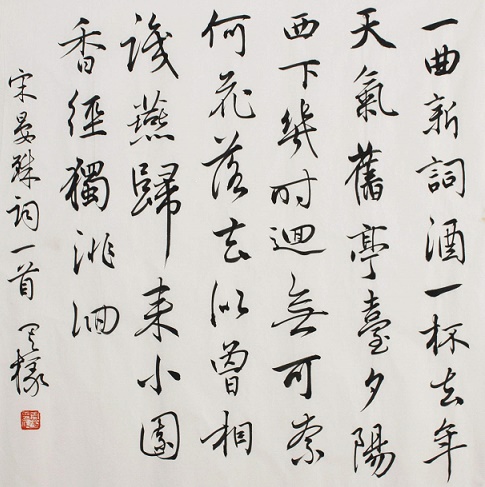 一曲新詞酒一杯去年
天氣舊亭臺夕陽
西下幾時迴無可奈
何花落去似曾相
識燕歸來小園
香徑獨徘徊
宋晏殊詞一首